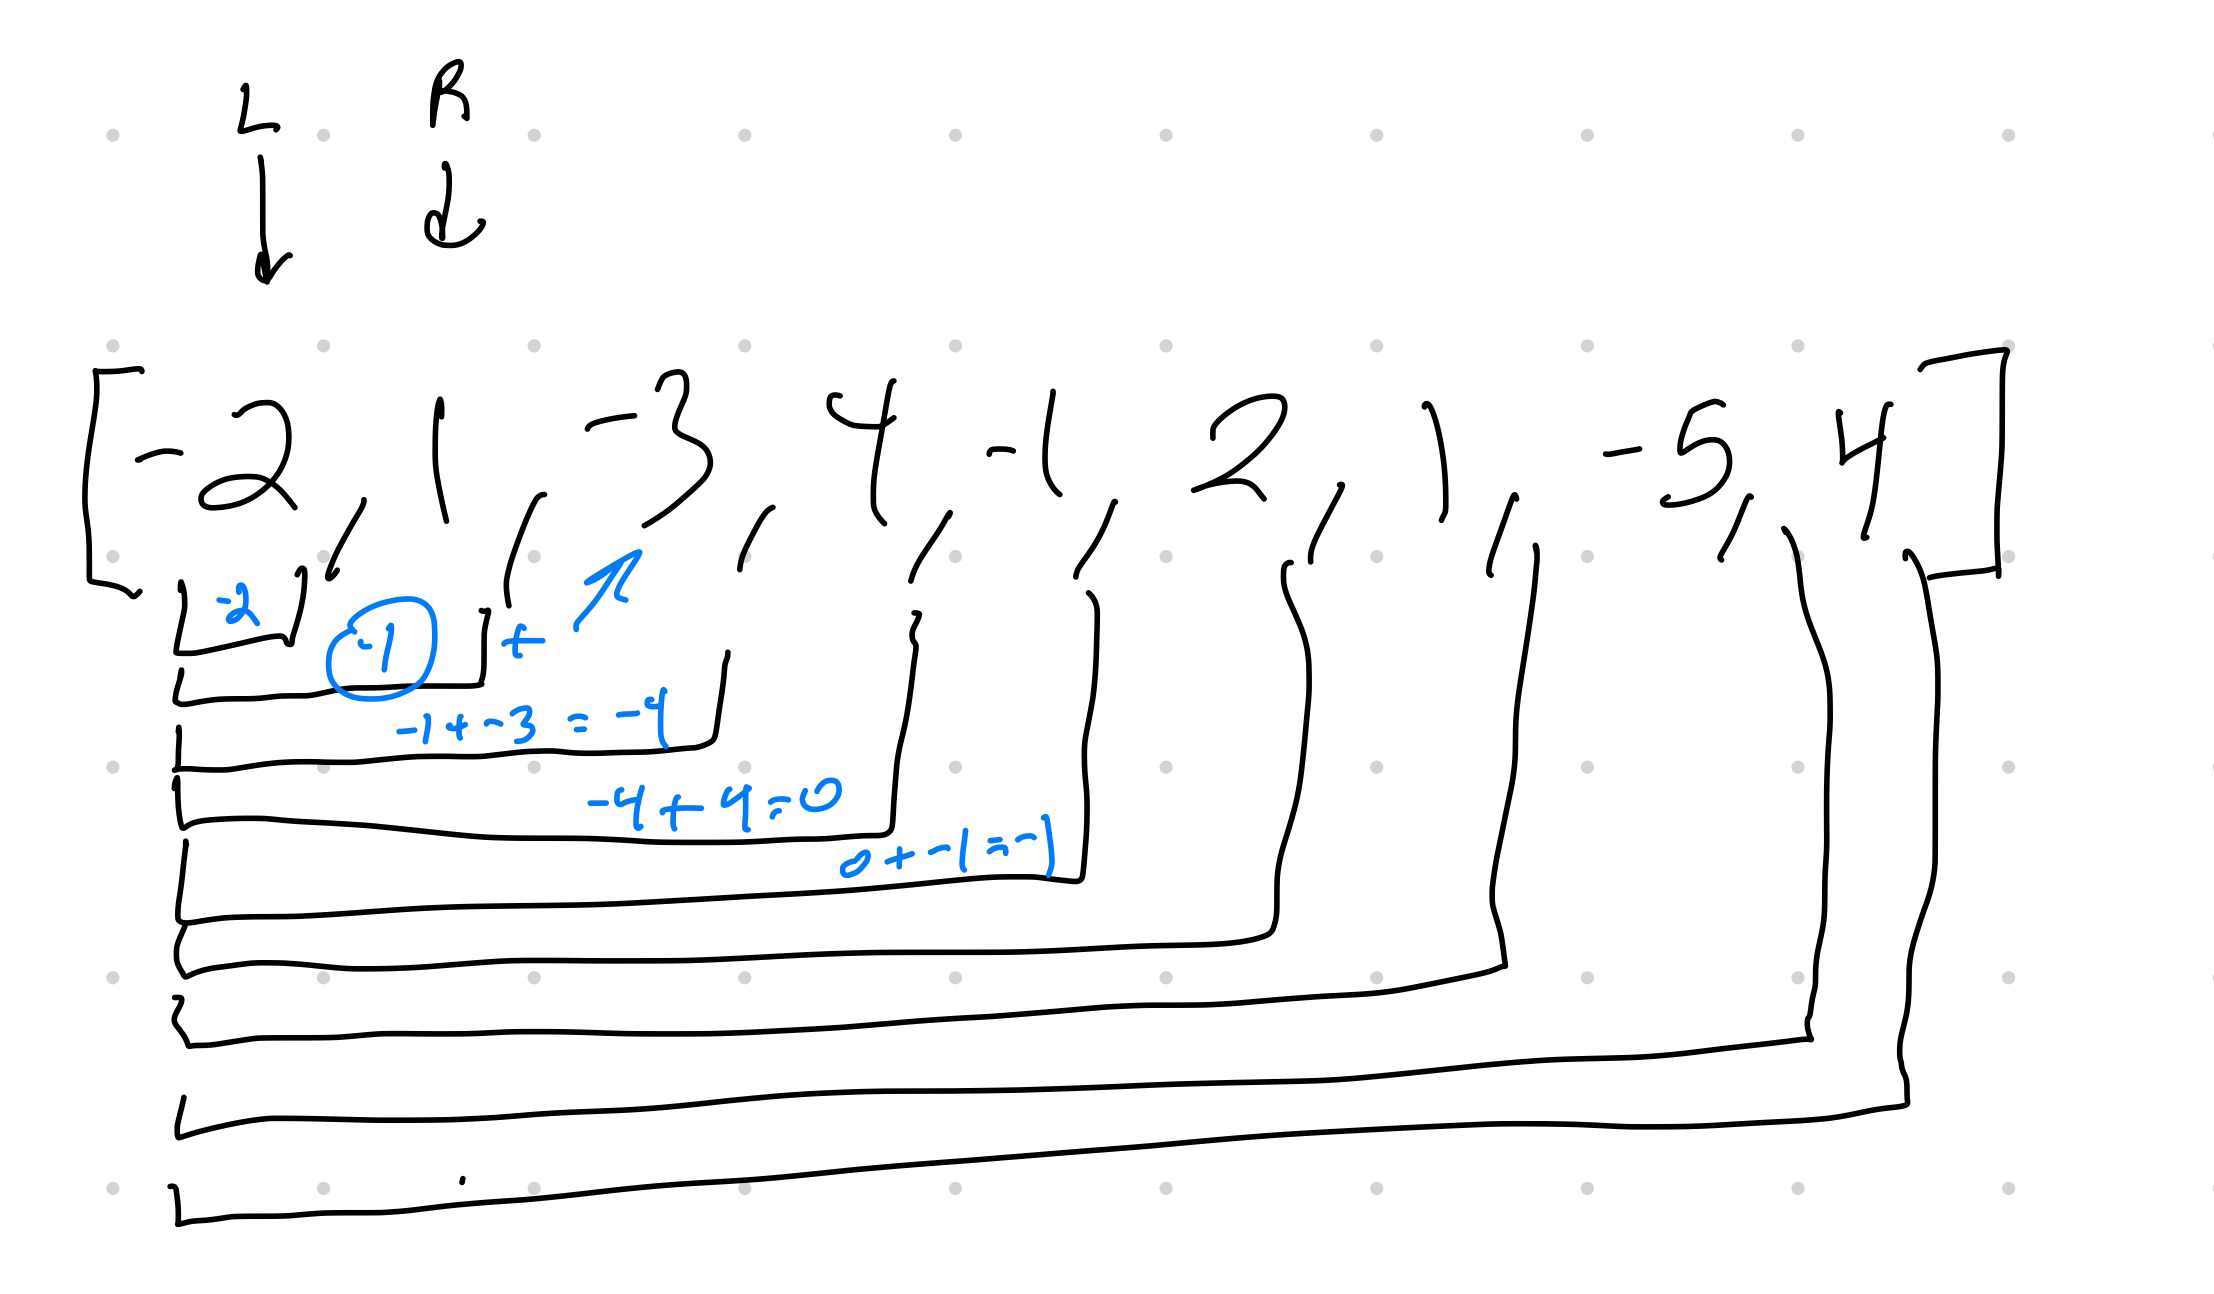 L R
[-2, 1, -3, 4, -1, 2, 1, -5, 4]
-2
-1 +
-1 + -3 = -4
-4 + 4 = 0
0 + -1 = -1